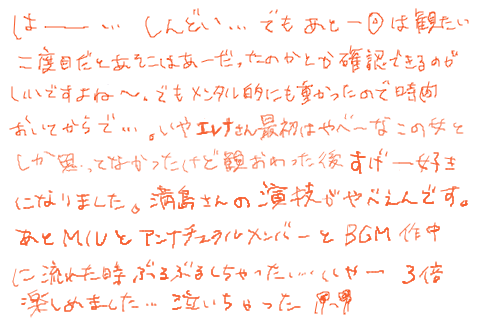 はー… しんどい… でもあと一回は観たい
二度目だとあそこはあーだったのかとか確認できるのが
いいですよね〜。でもメンタル的にも重かったので時間
おいてからで…。いやエレナさん最初はやべーなこの女と
しか思ってなかったけど観おわった後すげー好き
になりました。満島さんの演技がやべえんです。
あとMIUとアンナチュラルメンバーとBGM作中
に流れた時ぶるぶるしちゃったい…いやー 3倍
楽しめました… 泣いちゃった